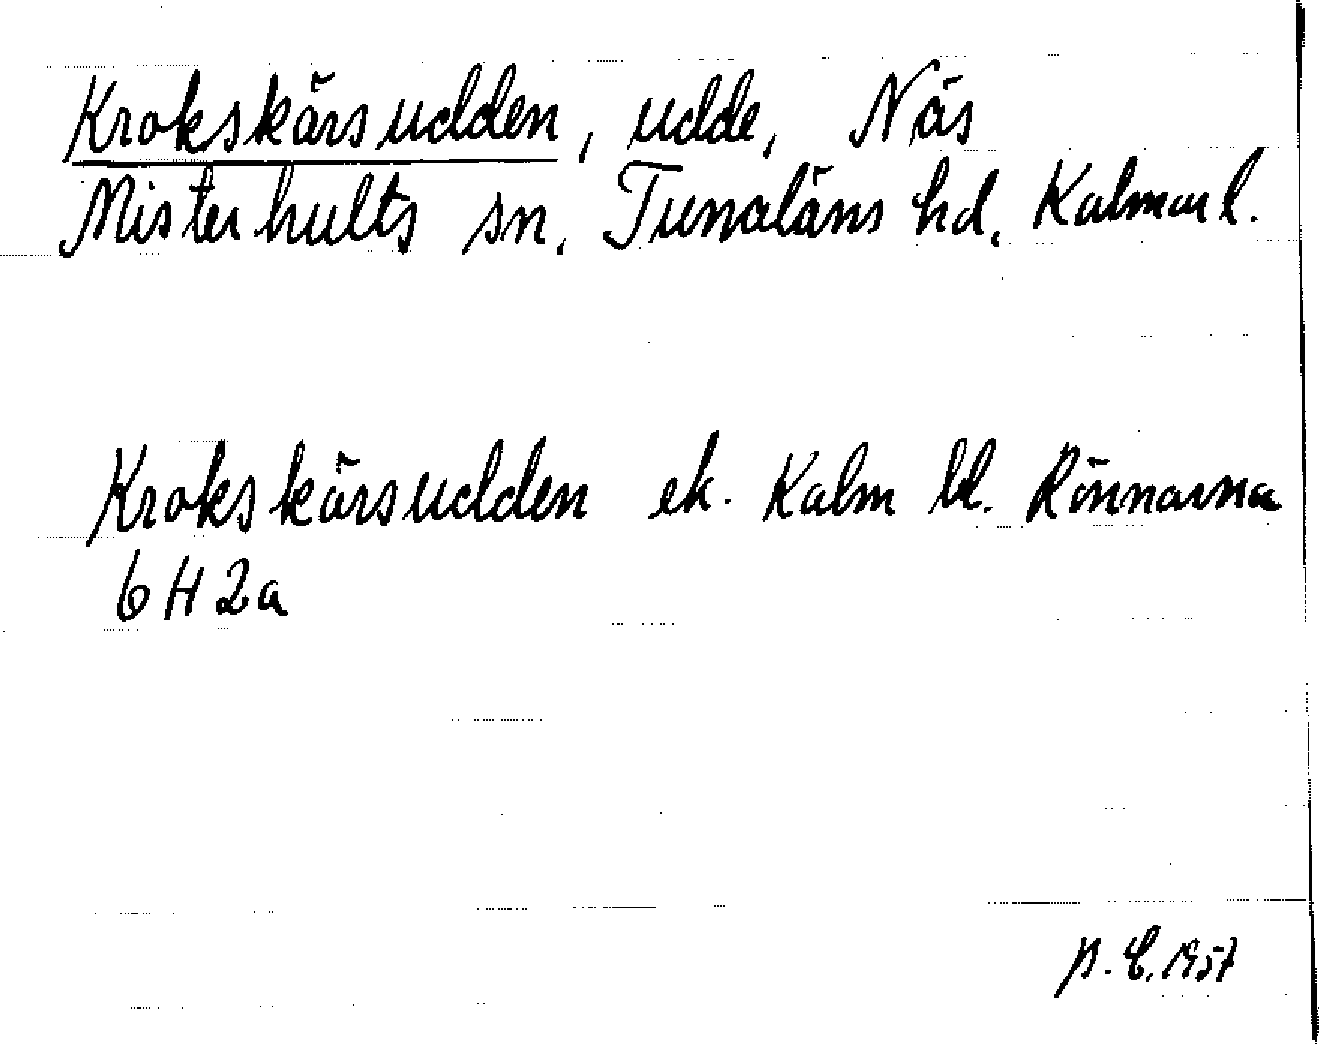 Krokskärsudden, udde, Näs
Misterhults sn. Tunaläns hd. Kalmar l.
Krokskärsudden ek. Kalm bl. Rönnarna
6 H 2a
1957